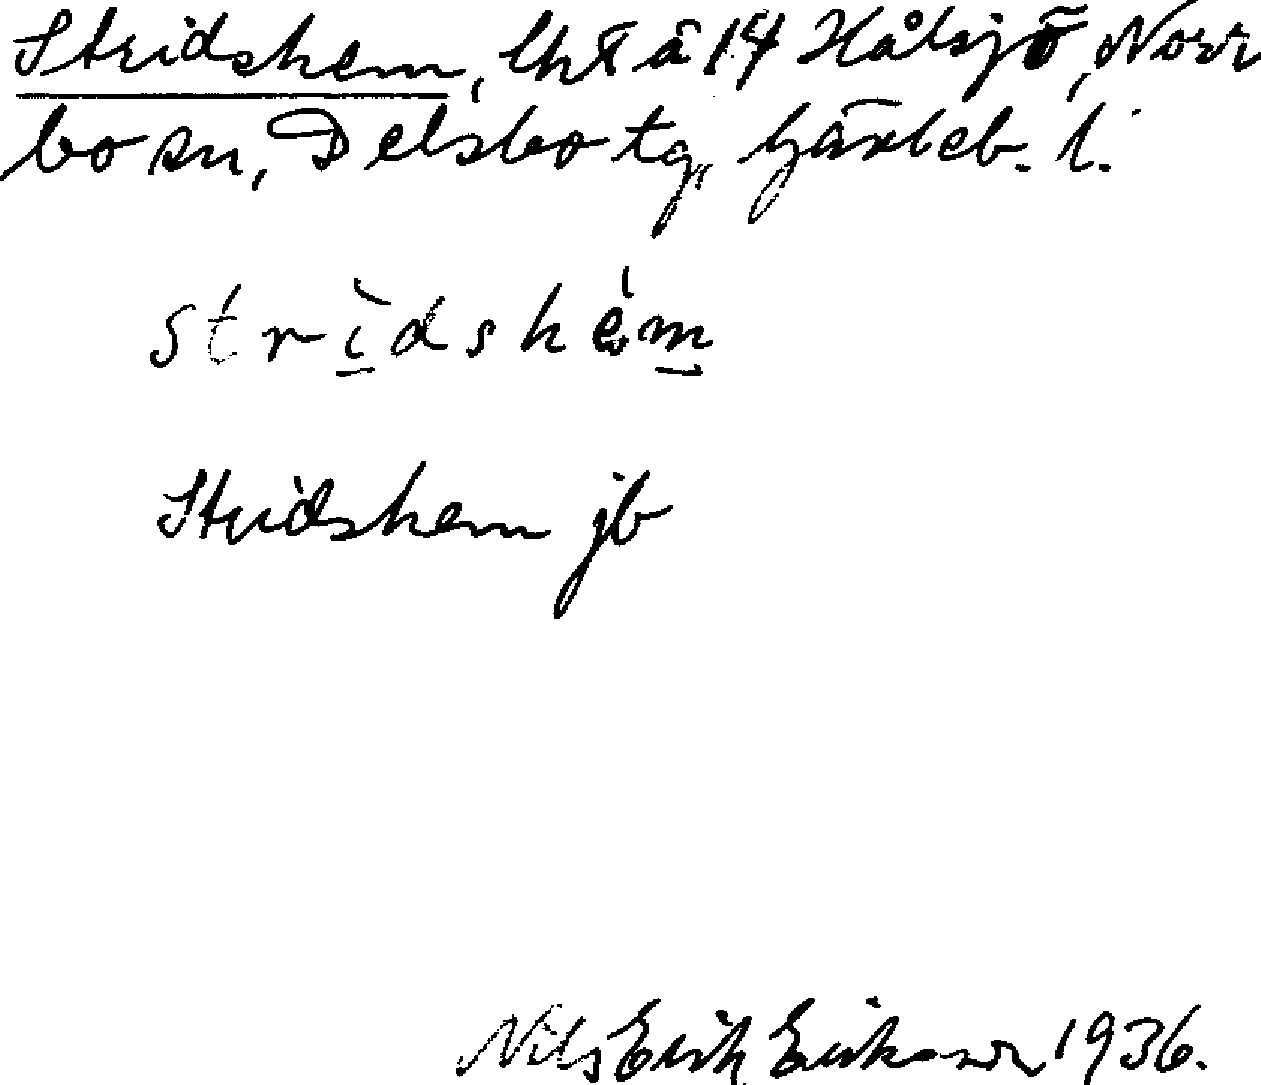 Stridshem, lht å 14 Hålsjö, Norr
bo sn, Delsbo tg, Gävleb. l.
strìdshém
Stridshem jb
Nils Erik Erikson 1936.